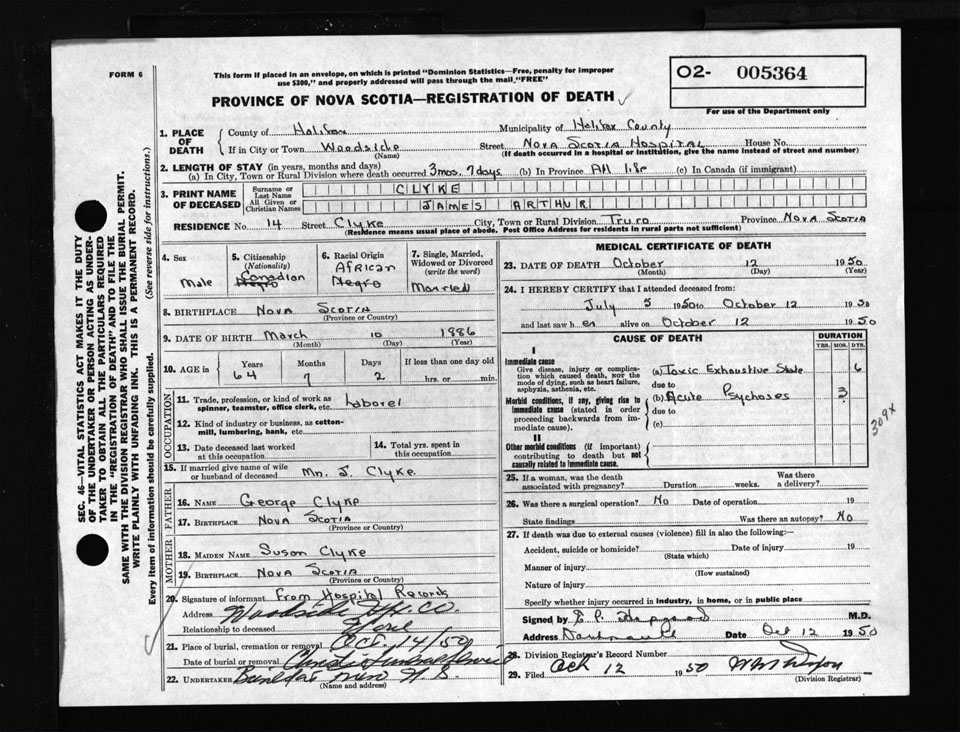 FORM 6
This form if placed in an envelope, on which is printed "Dominion Statistics—Free, penalty for improper
use $300," and properly addressed will pass through the mail "FREE"
PROVINCE OF NOVA SCOTIA—REGISTRATION OF DEATH
O2- 005364
For use of the Department only
SEC. 46—VITAL STATISTICS ACT MAKES IT THE DUTY
OF THE UNDERTAKER OR PERSON ACTING AS UNDER-
TAKER TO OBTAIN ALL THE PARTICULARS REQUIRED
IN THE "REGISTRATION OF DEATH" AND TO FILE THE
SAME WITH THE DIVISION REGISTRAR WHO SHALL ISSUE THE BURIAL PERMIT.
WRITE PLAINLY WITH UNFADING INK. THIS IS A PERMANENT RECORD.
Every item of information should be carefully supplied. (See reverse side for instructions.)
1. PLACE OF DEATH County of Halifax Municipality of Halifax County
If in City or Town Woodside Street Nova Scotia Hospital House No.
(Name) (If death occurred in a hospital or institution, give the name instead of street and number)
2. LENGTH OF STAY (in years, months and days)
(a) In City, Town or Rural Division where death occurred 3 mos. 7 days (b) In Province All life (c) In Canada (if immigrant)
3. PRINT NAME OF DECEASED Surname or Last Name CLYKE
All Given or Christian Names JAMES ARTHUR
RESIDENCE No. 14 Street Clyke City, Town or Rural Division Truro Province Nova Scotia
(Residence means usual place of abode. Post Office Address for residents in rural parts not sufficient)
4. Sex Male
5. Citizenship (Nationality) Canadian Negro
6. Racial Origin African Negro
7. Single, Married, Widowed or Divorced (write the word) Married
8. BIRTHPLACE Nova Scotia
(Province or Country)
9. DATE OF BIRTH March 10 1886
(Month) (Day) (Year)
10. AGE in Years 64 Months 7 Days 2 If less than one day old hrs. or min.
OCCUPATION
11. Trade, profession, or kind of work as
spinner, teamster, office clerk, etc. Laborer
12. Kind of industry or business, as cotton-
mill, lumbering, bank, etc.
13. Date deceased last worked at this occupation
14. Total yrs. spent in this occupation
15. If married give name of wife
or husband of deceased J. Clyke
FATHER
16. NAME George Clyke
17. BIRTHPLACE Nova Scotia
(Province or Country)
MOTHER
18. MAIDEN NAME Susan Clyke
19. BIRTHPLACE Nova Scotia
(Province or Country)
20. Signature of informant From Hospital Records
Address Woodside Hfx. Co
Relationship to deceased
21. Place of burial, cremation or removal Oct. 14/50
Date of burial or removal
22. UNDERTAKER
(Name and address)
MEDICAL CERTIFICATE OF DEATH
23. DATE OF DEATH October 12 1950
(Month) (Day) (Year)
24. I HEREBY CERTIFY that I attended deceased from:
July 5 1950 to October 12 1950
and last saw h alive on October 12 1950
CAUSE OF DEATH DURATION
YRS. MOS. DYS.
I
Immediate cause
Give disease, injury or complication
which caused death, NOT the
mode of dying, such as heart failure,
asphyxia, asthenia, etc.
(a) Toxic Exhaustive State 6
due to
(b) Acute Psychoses 3
due to
(c)
Morbid conditions, if any, giving rise to
immediate cause (stated in order
proceeding backwards from immediate
cause).
II
Other morbid conditions (if important)
contributing to death but not
causally related to immediate cause.
309x
25. If a woman, was the death
associated with pregnancy? Duration weeks. Was there a delivery?
26. Was there a surgical operation? No Date of operation 19
State findings Was there an autopsy? No
27. If death was due to external causes (violence) fill in also the following:—
Accident, suicide or homicide? Date of injury 19
(State which)
Manner of injury
(How sustained)
Nature of injury
Specify whether injury occurred in industry, in home, or in public place
Signed by M.D.
Address Dartmouth Date Oct 12 1950
28. Division Registrar's Record Number
29. Filed Oct 12 1950
(Division Registrar)